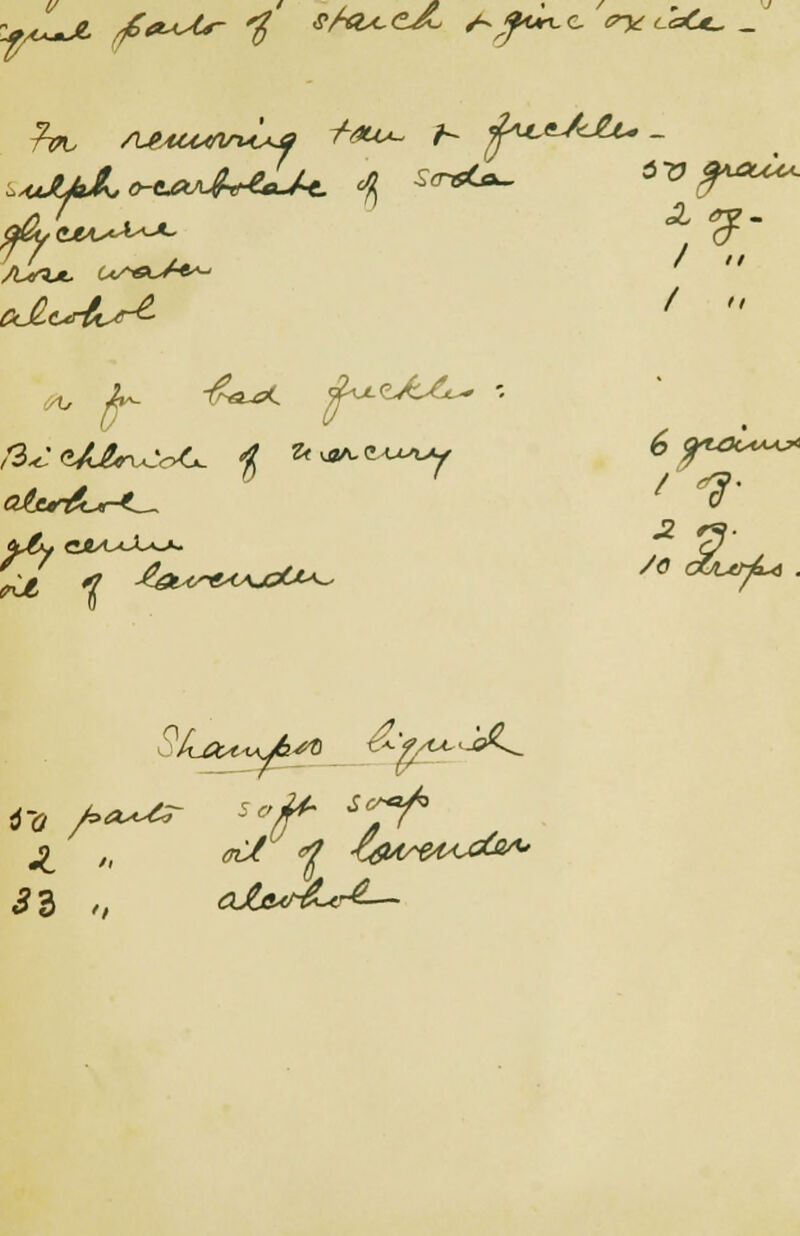 equal parts of starch & zinc oxide _
For removing tan & freckles _
sulpho-carbolate of Soda 50 grains
glycerine 2 ℥ -
rose water 1 "
alcohol 1 "
or for bad freckles :
Bi chloride of mercury 6 grains
alcohol 1 ℥.
glycerine 2 ℥.
oil of lavender 10 drops .
Shampoo liquid
50 parts soft soap
2 " oil of lavender
33 " alcohol